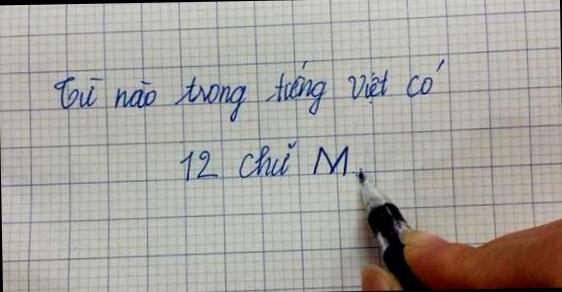 Từ nào trong tiếng Việt có
12 chữ M